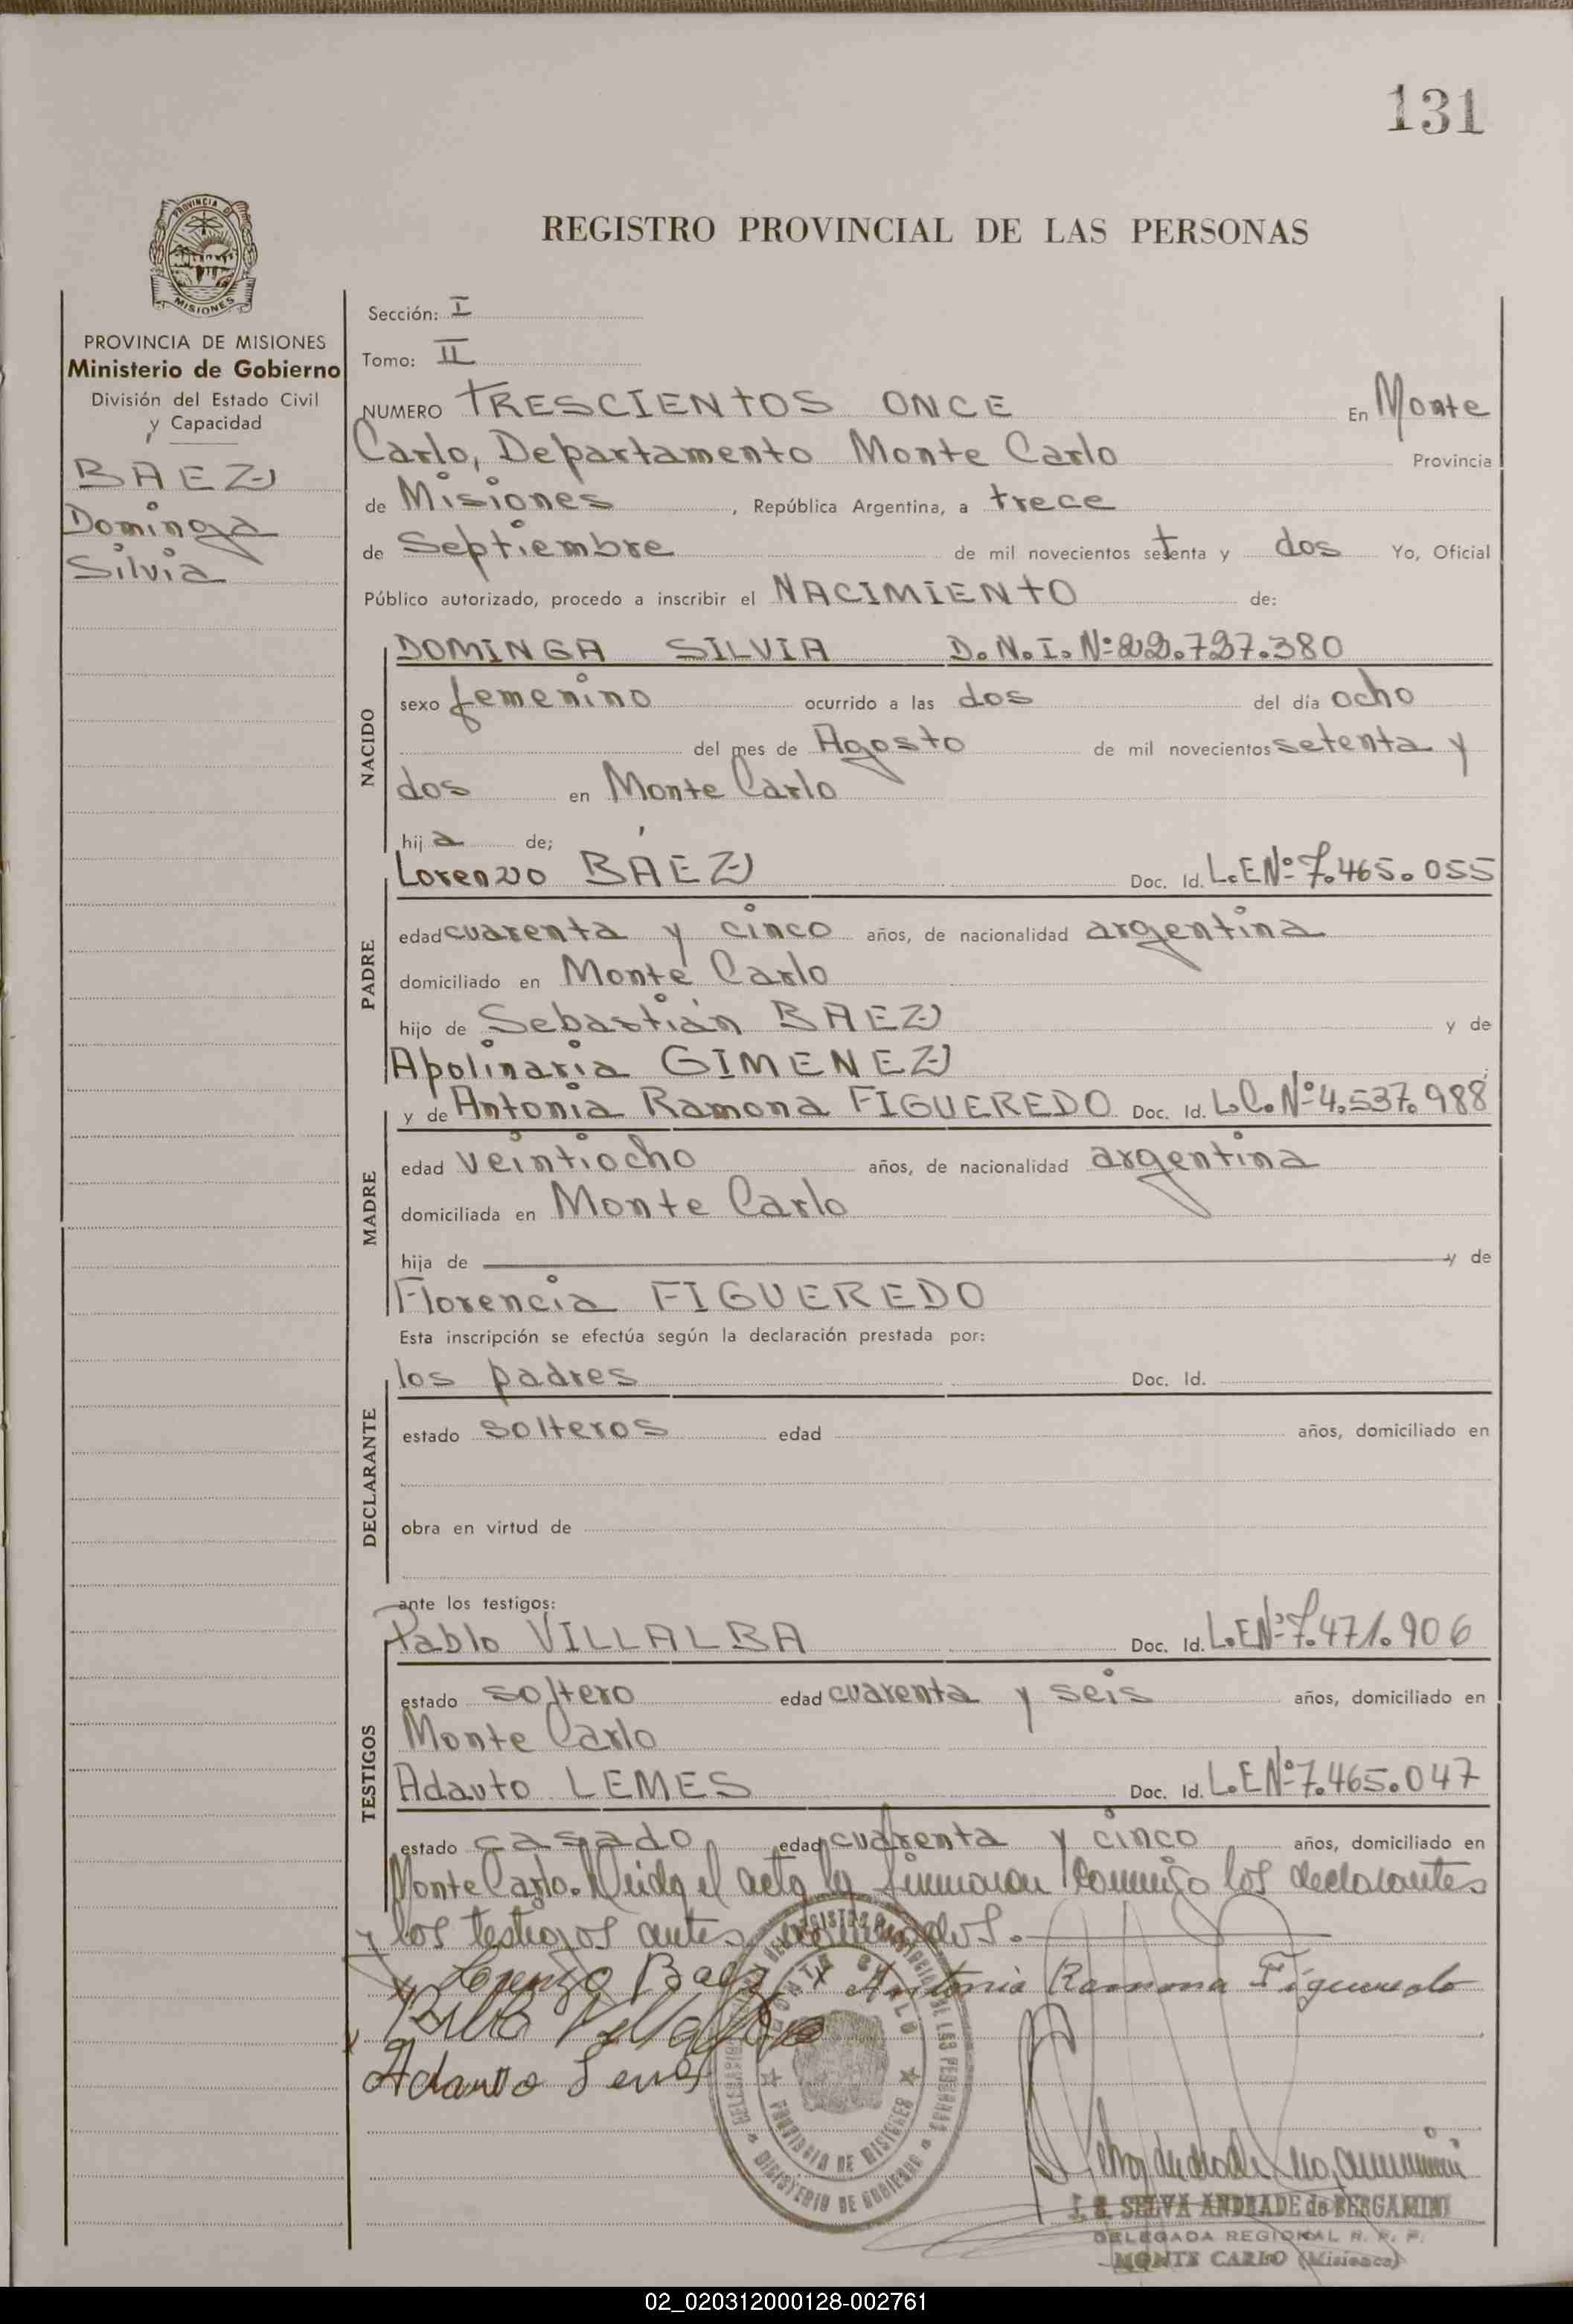 131
PROVINCIA DE
MISIONES
REGISTRO PROVINCIAL DE LAS PERSONAS
PROVINCIA DE MISIONES
Ministerio de Gobierno
División del Estado Civil
y Capacidad
BAEZ
Dominga
Silvia
Sección: I
Tomo: II
NUMERO TRESCIENTOS ONCE En Monte
Carlo, Departamento Monte Carlo Provincia
de Misiones, República Argentina, a trece
de Septiembre de mil novecientos setenta y dos Yo, Oficial
Público autorizado, procedo a inscribir el NACIMIENTO de:
NACIDO
DOMINGA SILVIA D.N.I. Nº 22.727.380
sexo femenino ocurrido a las dos del día ocho
del mes de Agosto de mil novecientos setenta y
dos en Monte Carlo
hija de;
PADRE
Lorenzo BÁEZ Doc. Id. L.E Nº 7.465.055
edad cuarenta y cinco años, de nacionalidad argentina
domiciliado en Monte Carlo
hijo de Sebastián BAEZ y de
Apolinaria GIMENEZ
MADRE
y de Antonia Ramona FIGUEREDO Doc. Id. L.C. Nº 4.537.988
edad veintiocho años, de nacionalidad argentina
domiciliada en Monte Carlo
hija de y de
Florencia FIGUEREDO
Esta inscripción se efectúa según la declaración prestada por:
DECLARANTE
los padres Doc. Id.
estado solteros edad años, domiciliado en
obra en virtud de
ante los testigos:
TESTIGOS
Pablo VILLALBA Doc. Id. L.E Nº 7.471.906
estado soltero edad cuarenta y seis años, domiciliado en
Monte Carlo
Adauto LEMES Doc. Id. L.E Nº 7.465.047
estado casado edad cuarenta y cinco años, domiciliado en
Monte Carlo. Leida el acta la firmaron conmigo los declarantes
y los testigos antes nombrados.
x Lorenzo Baez x Antonia Ramona Figueredo
x Pablo Villalba
Adauto Lemes
MONTE CARLO
PROVINCIA DE MISIONES
MINISTERIO DE GOBIERNO
SELVA ANDRADE de BERGAMINI
DELEGADA REGIONAL R. P. P.
MONTE CARLO (Misiones)
02_020312000128-002761